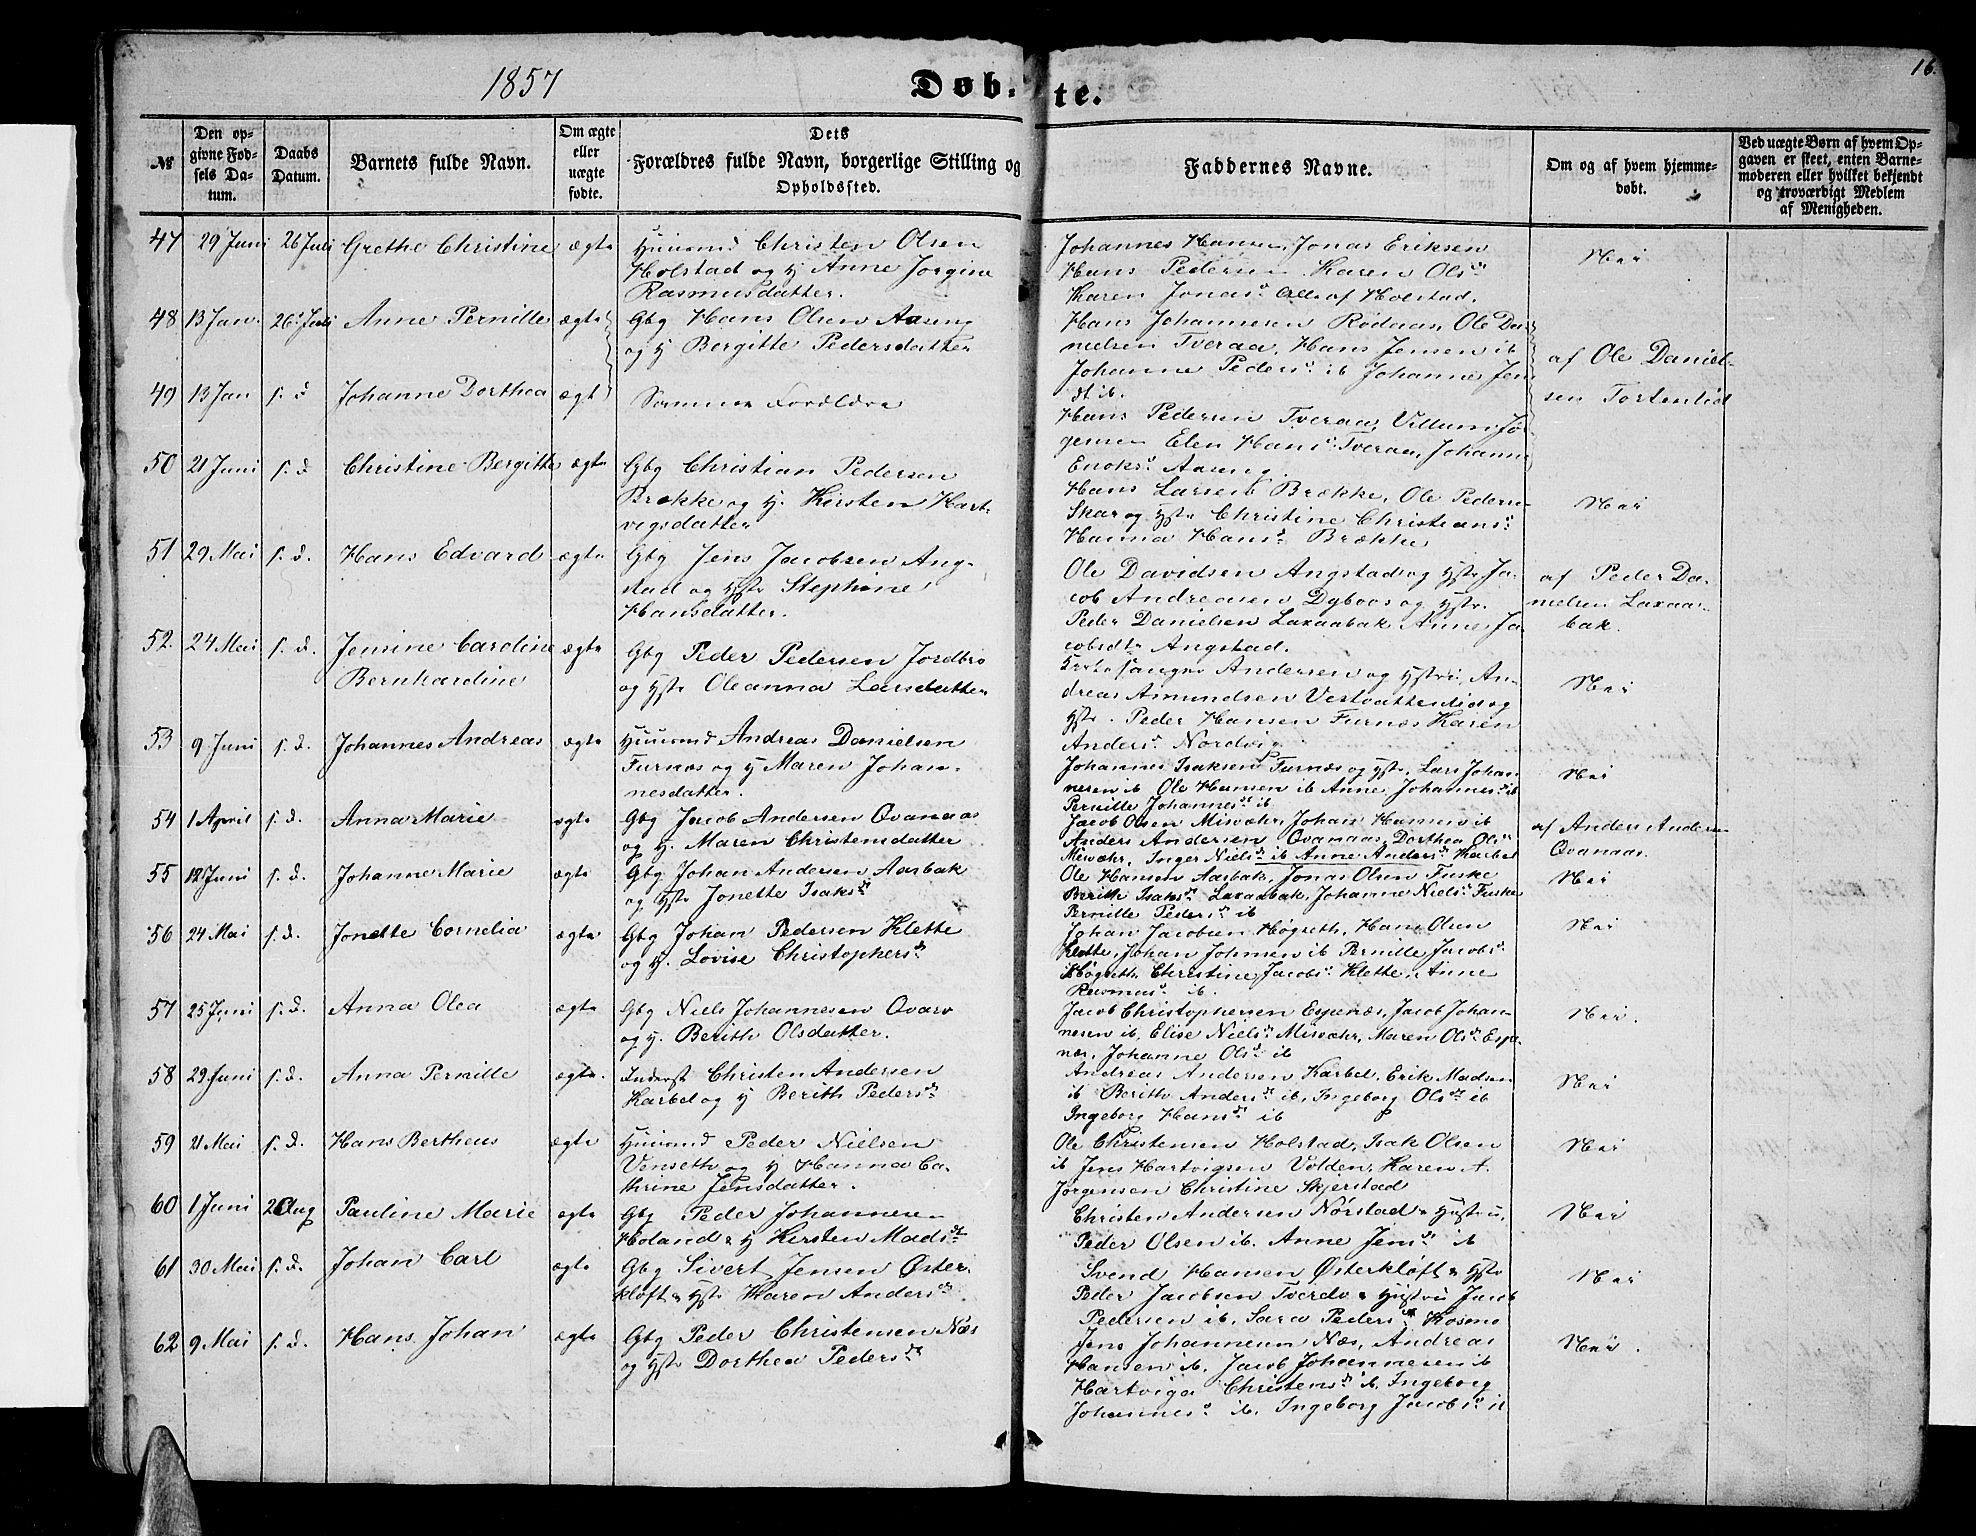 1857
Døbte.
16.
№
Den opgivne Fødsels Datum.
Daabs Datum.
Barnets fulde Navn.
Om ægte eller uægte fødte.
Dets Forældres fulde Navn, borgerlige Stilling og Opholdssted.
Faddernes Navne.
Om og af hvem hjemmedøbt.
Ved uægte Børn af hvem Opgaven er skeet, enten Barnemoderen eller hvilket bekjendt og troværdigt Medlem af Menigheden.
47 29 Juni 26 Juli Grethe Christine ægte Huusmd Christen Olsen
Holstad og H Anne Jørgine
Rasmusdatter.
Johannes Hansen, Jonas Eriksen
Hans Pedersen Karen Olsd
Karen Jonasd Alle af Holstad.
Nei
48 13 Jan. 26 Juli Anne Pernille ægte Gbg Hans Olsen Aaseng
og H Bergitte Pedersdatter
Hans Johannesen Rødaas, Ole Da-
nielsen Tveraa, Hans Jensen ib
Johanne Pedersd ib Johanne Jen
dt ib.
af Ole Daniel-
sen Tortenlid
49 13 Jan s. d Johanne Dorthea ægt Samme Forældre
Hans Pedersen Tveraa, Villum Jø-
gensen Elen Hansd Tveraa, Johanne
Enoksd Aaseng.
50 21 Juni s. d Christine Bergitte ægte Gbg Christian Pedersen
Brække og H. Kirsten Hart-
vigsdatter
Hans Larsen Brække, Ole Pedersen
Skar og Hst Christine Christiansd
Hanna Hansd Brække
Nei
51 29 Mai s. d. Hans Edvard ægte Gbg Jens Jacobsen Ang-
stad og Hst Stephine
Hansdatter.
Ole Davidsen Angstad og Hst Ja-
cob Andreasen Dybvos og Hst.
Peder Danielsen Laxaabak Anne Ja
cobsdt Angstad.
af Peder Da-
nielsen Laxaa-
bak.
52. 24 Mai s. d. Jensine Cardine
Bernhardine ægte Gbg Peder Pedersen Jordbro
og Hst Oleanna Larsdatter
Kirkesanger Andersen og Hstr, An-
dreas Amundsen Vestvattenlid og
Hst. Peder Hansen Furnæs Karen
Andersd Nordvig
Nei
53 9 Juni s. d. Johannes Andreas ægte Huusmd Andreas Danielsen
Furnæs og H Maren Johan-
nesdatter.
Johannes Isaksen Furnæs og Hst, Lars Johan-
nesen ib Ole Hansen ib Anne Johannesd ib
Pernille Johannesd ib
Nei
54 1 April s. d. Anna Marie ægte Gbg Jacob Andersen Ovanaas
og H. Maren Christensdatter
Jacob Olsen Misvæhr, Johan Hansen ib
Anders Andersen Ovanaas, Dorthea Olsd
Misvæhr, Inger Nielsd ib Anne Andersd Karbøl
af Anders Andersen
Ovanaas.
55 12 Juni s. d. Johanne Marie ægte Gbg Johan Andersen Aasbak
og Hst Jonette Isaksd
Ole Hansen Aasbak, Jonas Olsen Fuske
Berith Isaksd Laxaabak, Johanne Nielsd Fuske
Pernille Pedersd ib
Nei
56 24 Mai s. d. Jonette Cornelia ægte Gbg Johan Pedersen Klette
og H. Lovise Christophersd
Johan Jacobsen Høgseth, Hans Olsen
Klette, Johan Johnsen ib Pernille Jacobsd
Høgseth Christine Jacobsd Klette, Anne
Rasmusd ib.
Nei
57 25 Juni s. d. Anna Olea ægte Gbg Niels Johannesen Qvarv
og H. Berith Olsdatter.
Jacob Christophersen Espenæs, Jacob Johan-
nesen ib, Elise Nielsd Misvæhr, Maren Olsd Espe-
næs, Johanne Olsd ib
Nei.
58 29 Juni s. d. Anna Pernille ægte. Inderst Christen Andersen
Karbøl og H Berith Pedersd
Andreas Andersen Karbøl, Erik Madsen
ib Berith Andersd ib, Ingeborg Olsd ib
Ingeborg Hansd ib
Nei
59 21 Mai s. d. Hans Bertheus ægte Huusmd Peder Nielsen
Venseth og H Hanna Ca-
thrine Jensdatter.
Ole Christensen Holstad, Isak Olsen
ib Jens Hartvigsen Volden, Karen A.
Jørgensen Christine Skjerstad
Nei
60 1 Juni 2 Aug Pauline Marie ægte Gbg Peder Johannesen
Holand & H Kirsten Madsd
Christen Andersen Nørstad & Hustru,
Peder Olsen ib. Anne Jensd ib
Nei
61 30 Mai s. d. Johan Carl ægte Gbg Sivert Jensen Øster-
kløft & Hst Karen Andersd.
Svend Hansen Østerkløft & Hst
Peder Jacobsen Tverdv & Hustru Jacob
Pedersen ib, Sara Pedersd Kosmo
Nei
62 9 Mai s. d. Hans Johan ægte Gbg Peder Christensen Næs
og Hst Dorthea Pedersd
Jens Johannesen Næs, Andreas
Hansen ib, Jacob Johannesen ib
Hartviga Christensd ib, Ingeborg
Johannesd ib. Ingeborg Jacobsd ib
Nei.